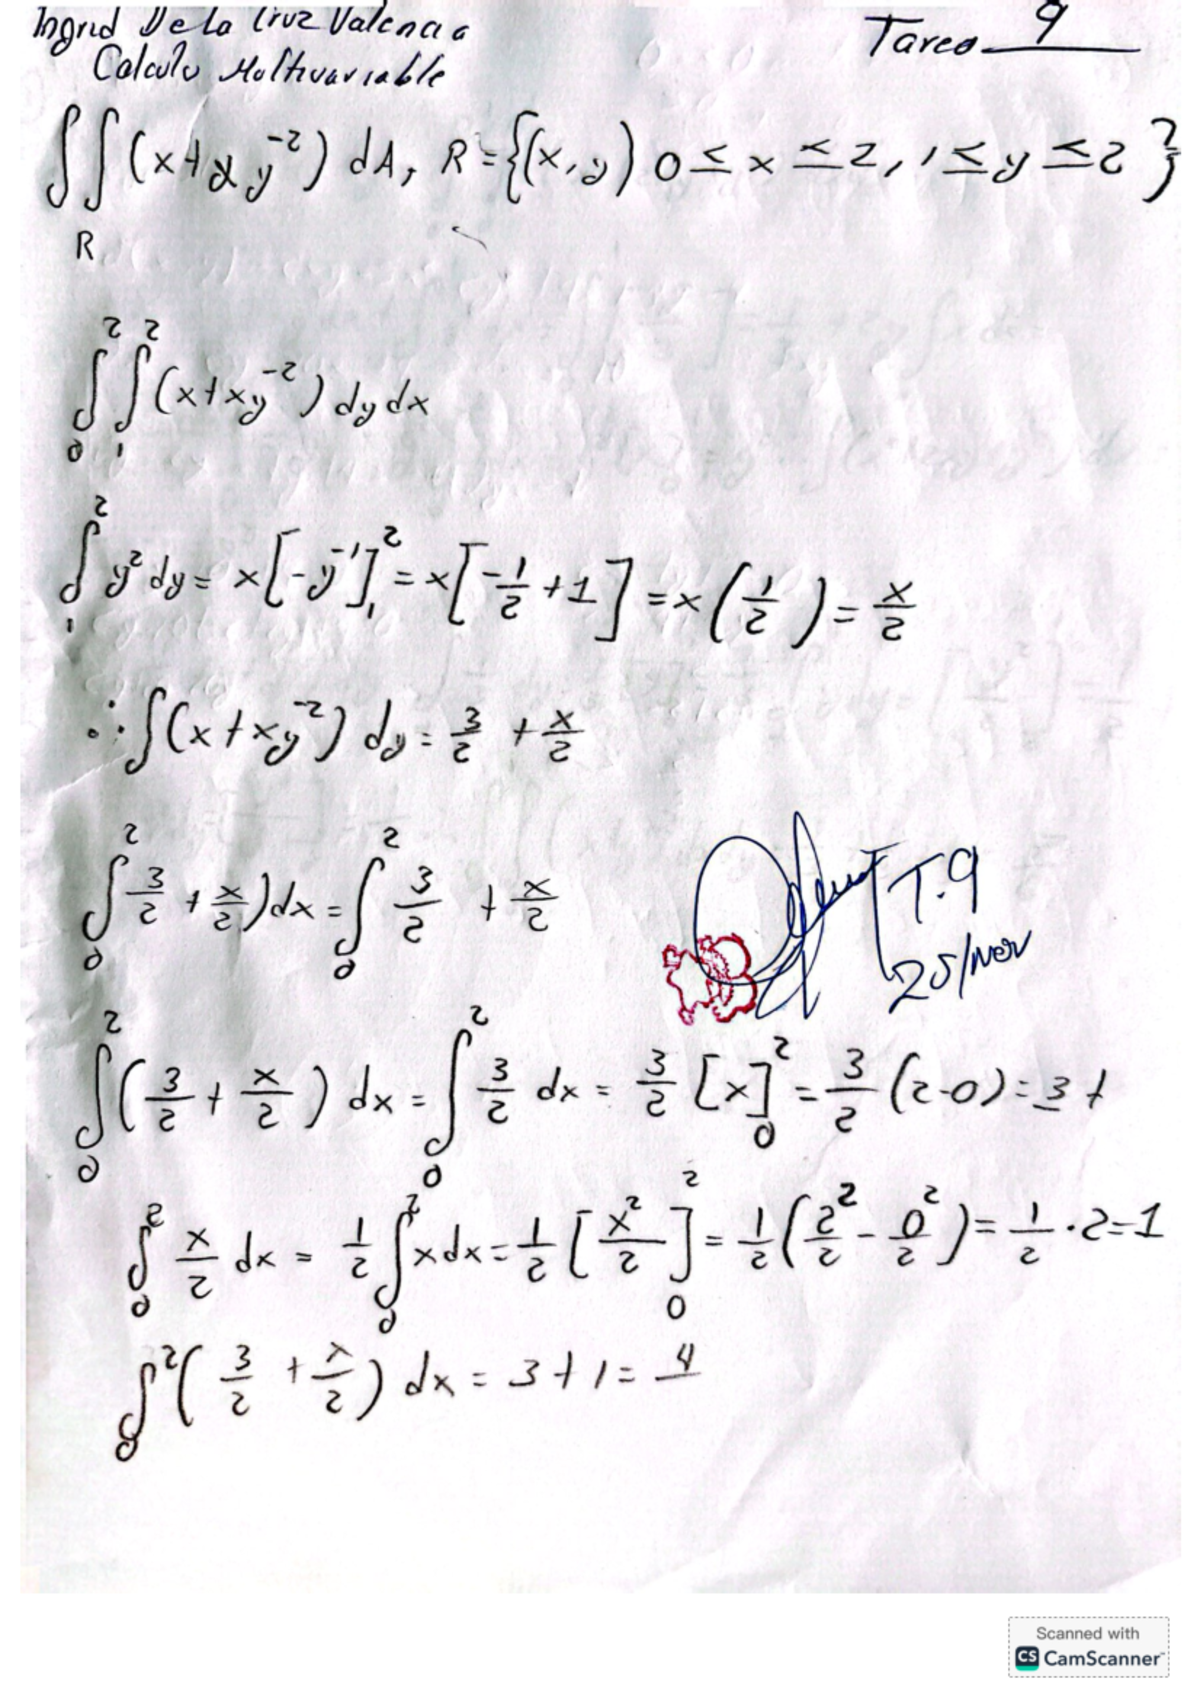 Ingrid De La Cruz Valencia
Tarea 9
Calculo Multivariable
∫∫ (x+xy⁻²) dA, R={(x,y) 0≤x≤2, 1≤y≤2}
R
∫₀² ∫₁² (x+xy⁻²) dy dx
∫₁² y² dy = x[-y⁻¹]₁² = x[-1/2 + 1] = x(1/2) = x/2
∴ ∫(x+xy⁻²) dy = 3/2 + x/2
∫₀² 3/2 + x/2) dx = ∫₀² 3/2 + x/2
T.9
25/nov
∫₀² (3/2 + x/2) dx = ∫₀² 3/2 dx = 3/2 [x]₀² = 3/2 (2-0) = 3 +
∫₀² x/2 dx = 1/2 ∫₀² x dx = 1/2 [x²/2]₀² = 1/2 (2²/2 - 0²/2) = 1/2 · 2 = 1
∫₀² (3/2 + x/2) dx = 3 + 1 = 4
Scanned with
CS CamScanner